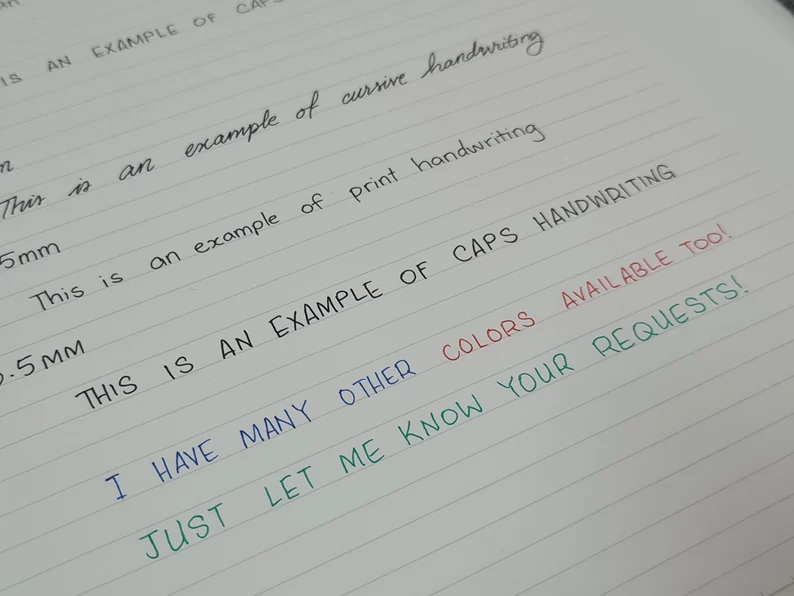 IS AN EXAMPLE OF CAPS
This is an example of cursive handwriting
5mm
This is an example of print handwriting
.5MM
THIS IS AN EXAMPLE OF CAPS HANDWRITING
I HAVE MANY OTHER COLORS AVAILABLE TOO!
JUST LET ME KNOW YOUR REQUESTS!